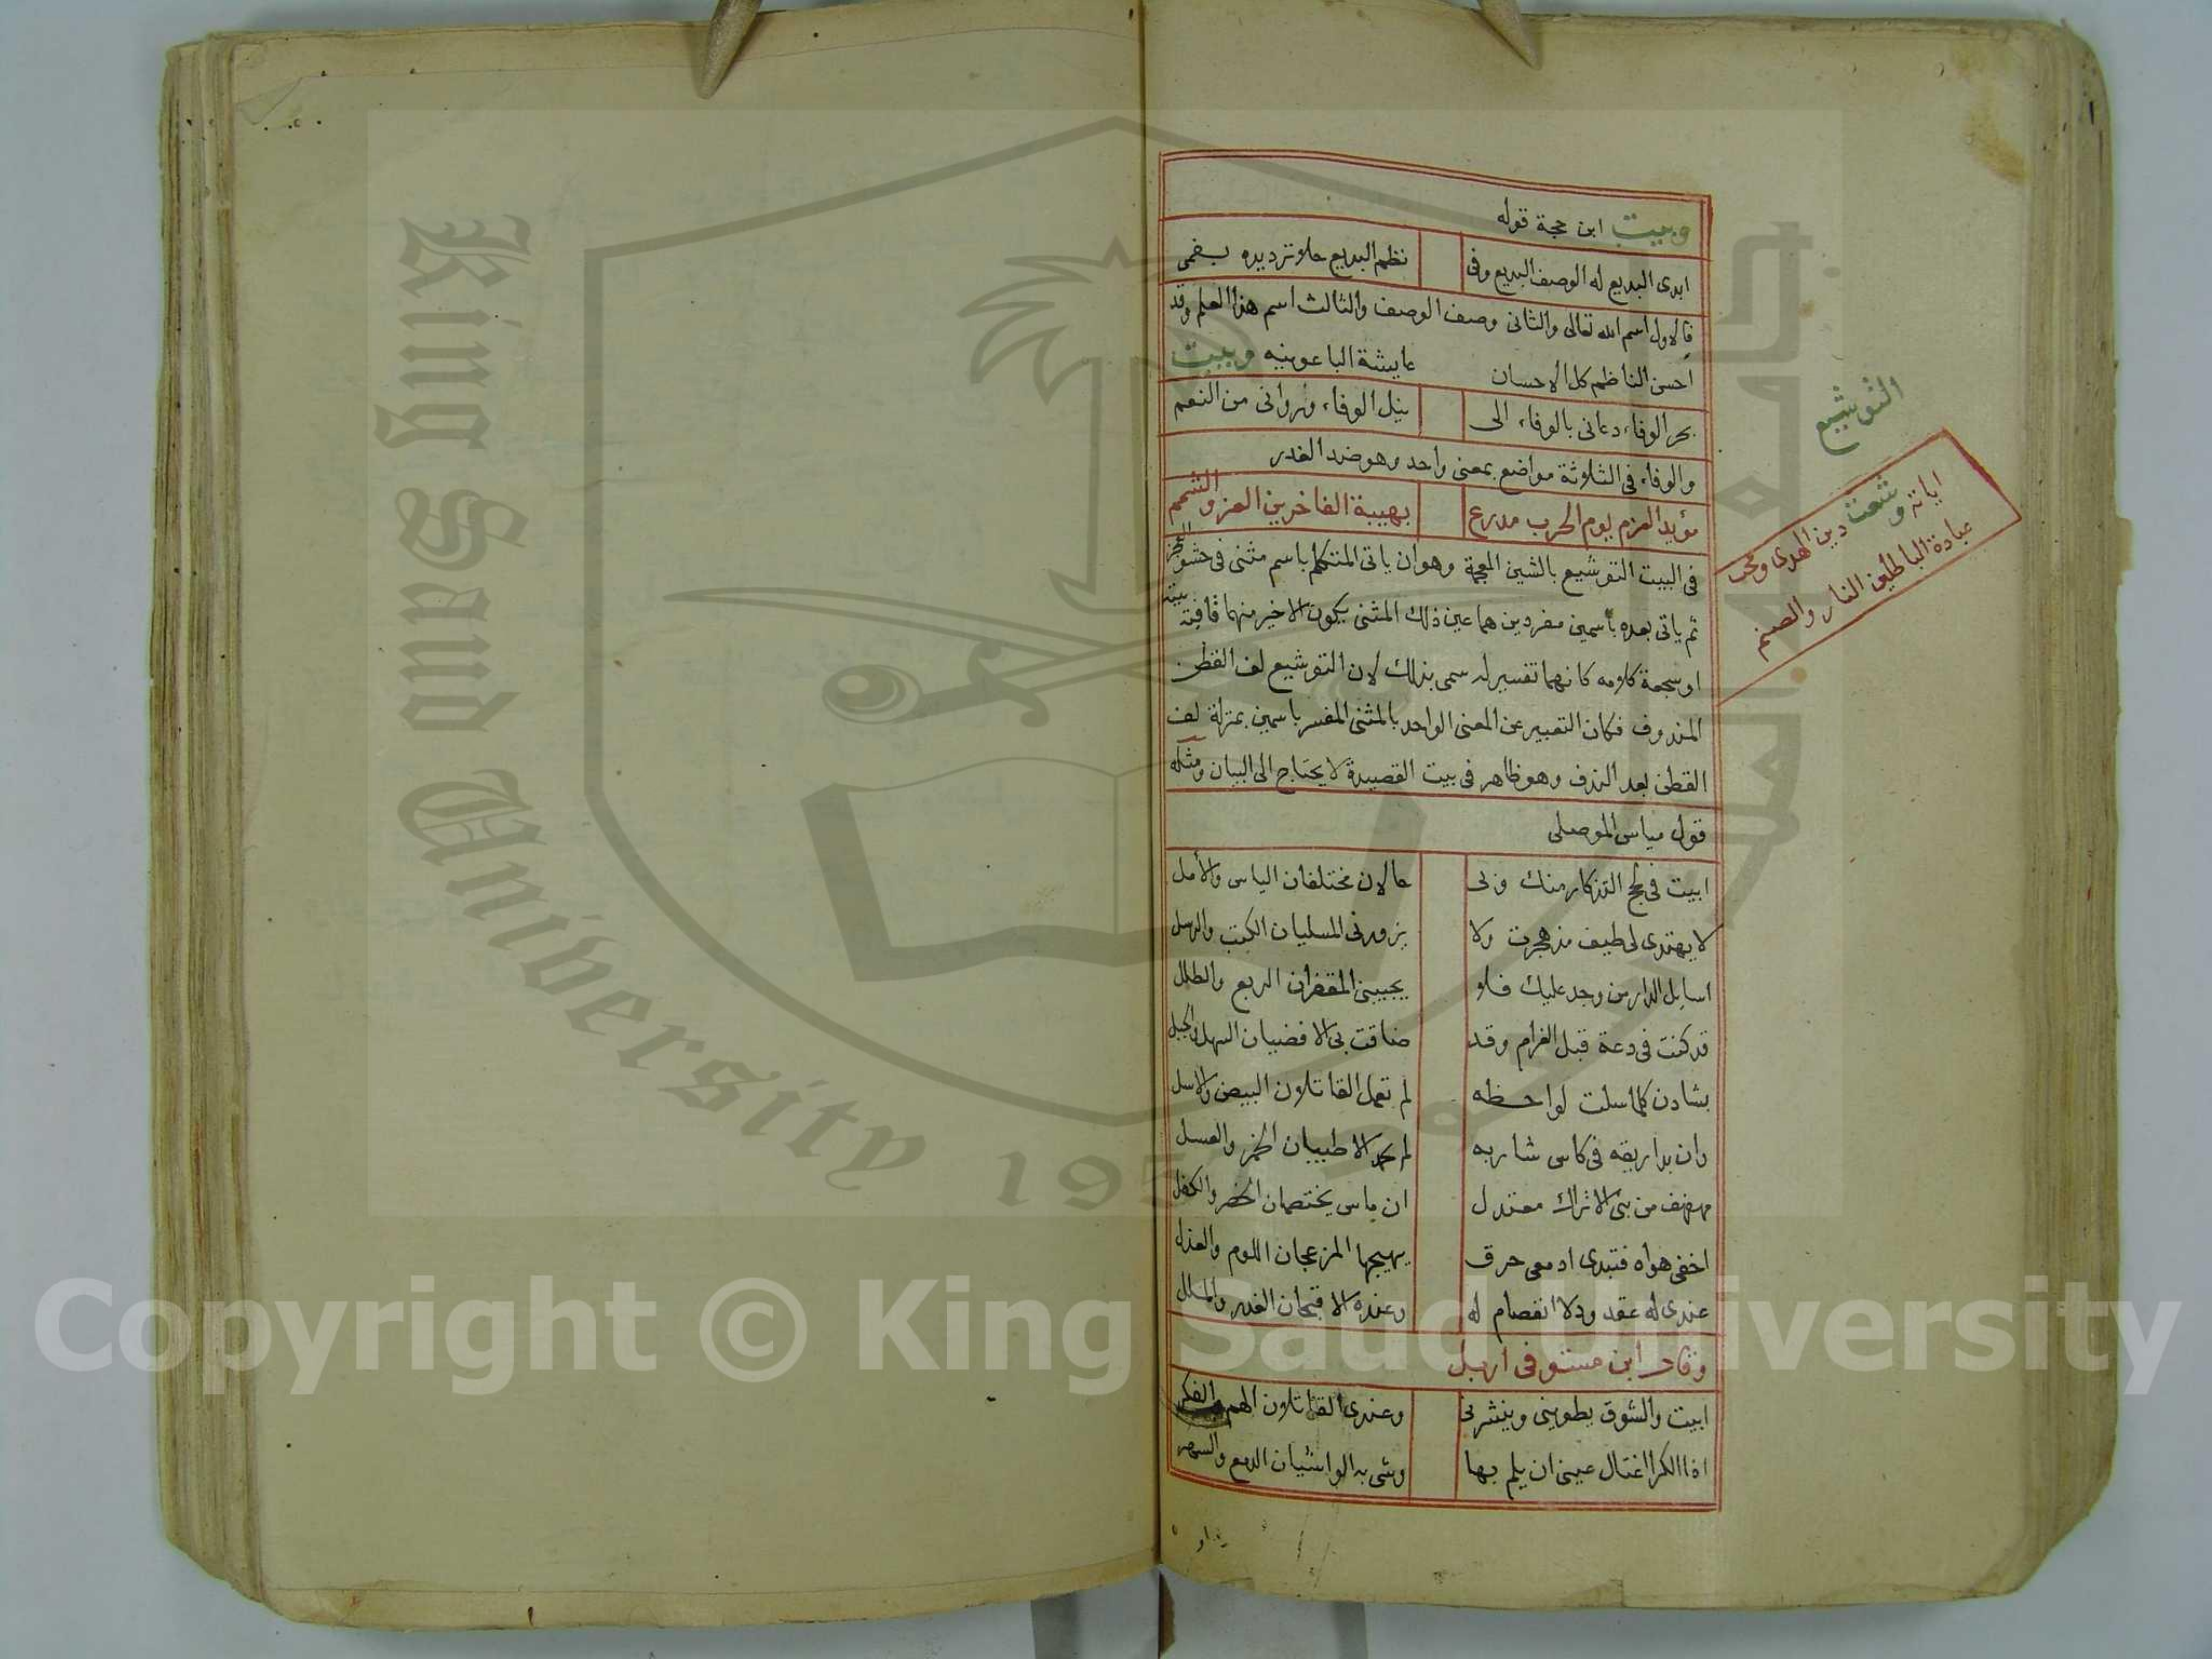 وبيت ابن حجة قوله
ابدى البديع له الوصف البديع وفى نظم البديع حلا ترديده بفمى
فالاول اسم الله تعالى والثانى وصف الوصف والثالث اسم هذا العلم وقد
احسن الناظم كل الاحسان وبيت عايشة الباعونيه
بحر الوفاء دعانى بالوفاء الى نيل الوفاء وروانى من النعم
والوفاء فى الثلاثة مواضع بمعنى واحد وهو ضد الغدر
مؤيد العزم يوم الحرب مدرع بهيبة الفاخرين العز والشمم
فى البيت التوشيع بالشين المعجمة وهو ان ياتى المتكلم باسم مثنى فى حشو العجز
ثم ياتى بعده باسمين مفردين هما عين ذلك المثنى يكون الاخير منهما قافية بيته
او سجعة كلامه كانهما تفسير له سمى بذلك لان التوشيع لف القطن
المندوف فكان التعبير عن المعنى الواحد بالمثنى المفسر باسمين بمنزلة لف
القطن بعد الندف وهو ظاهر فى بيت القصيدة لا يحتاج الى البيان ومثله
قول مياس الموصلى
ابيت فى لج التذكار منك ولى حالان مختلفان الياس والأمل
لا يهتدى لى طيف مذ هجرت ولا يزورنى المسليان الكتب والرسل
اسايل الدار من وجد عليك فلو يجيبنى المقفران الربع والطلل
قد كنت فى دعة قبل الغرام وقد ضاقت بى الافضيان السهل والجبل
بشادن كلما سلت لواحظه لم تعمل القاتلان البيض والاسل
وان بدا ريقه فى كاس شاربه لم يحد الاطيبان الخمر والعسل
مهفهف من بنى الاتراك معتدل ان ماس يختصمان الخصر والكفل
اخفى هواه فتبدى ادمعى حرق يهيجها المزعجان اللوم والعذل
عندى له عقد ود لا انفصام له وعنده الاقبحان الغدر والملل
وقال ابن مستوفى اربل
ابيت والشوق يطوينى وينشرنى وعندى القاتلان الهم والفكر
اذا الكرا اغتال عينى ان يلم بها وشى به الواشيان الدمع والسهر
التوشيع
اياته وشعت دين الهدى ومحت
عبادة الباطلين النار والصنم
King Saud University
1957
Copyright © King Saud University